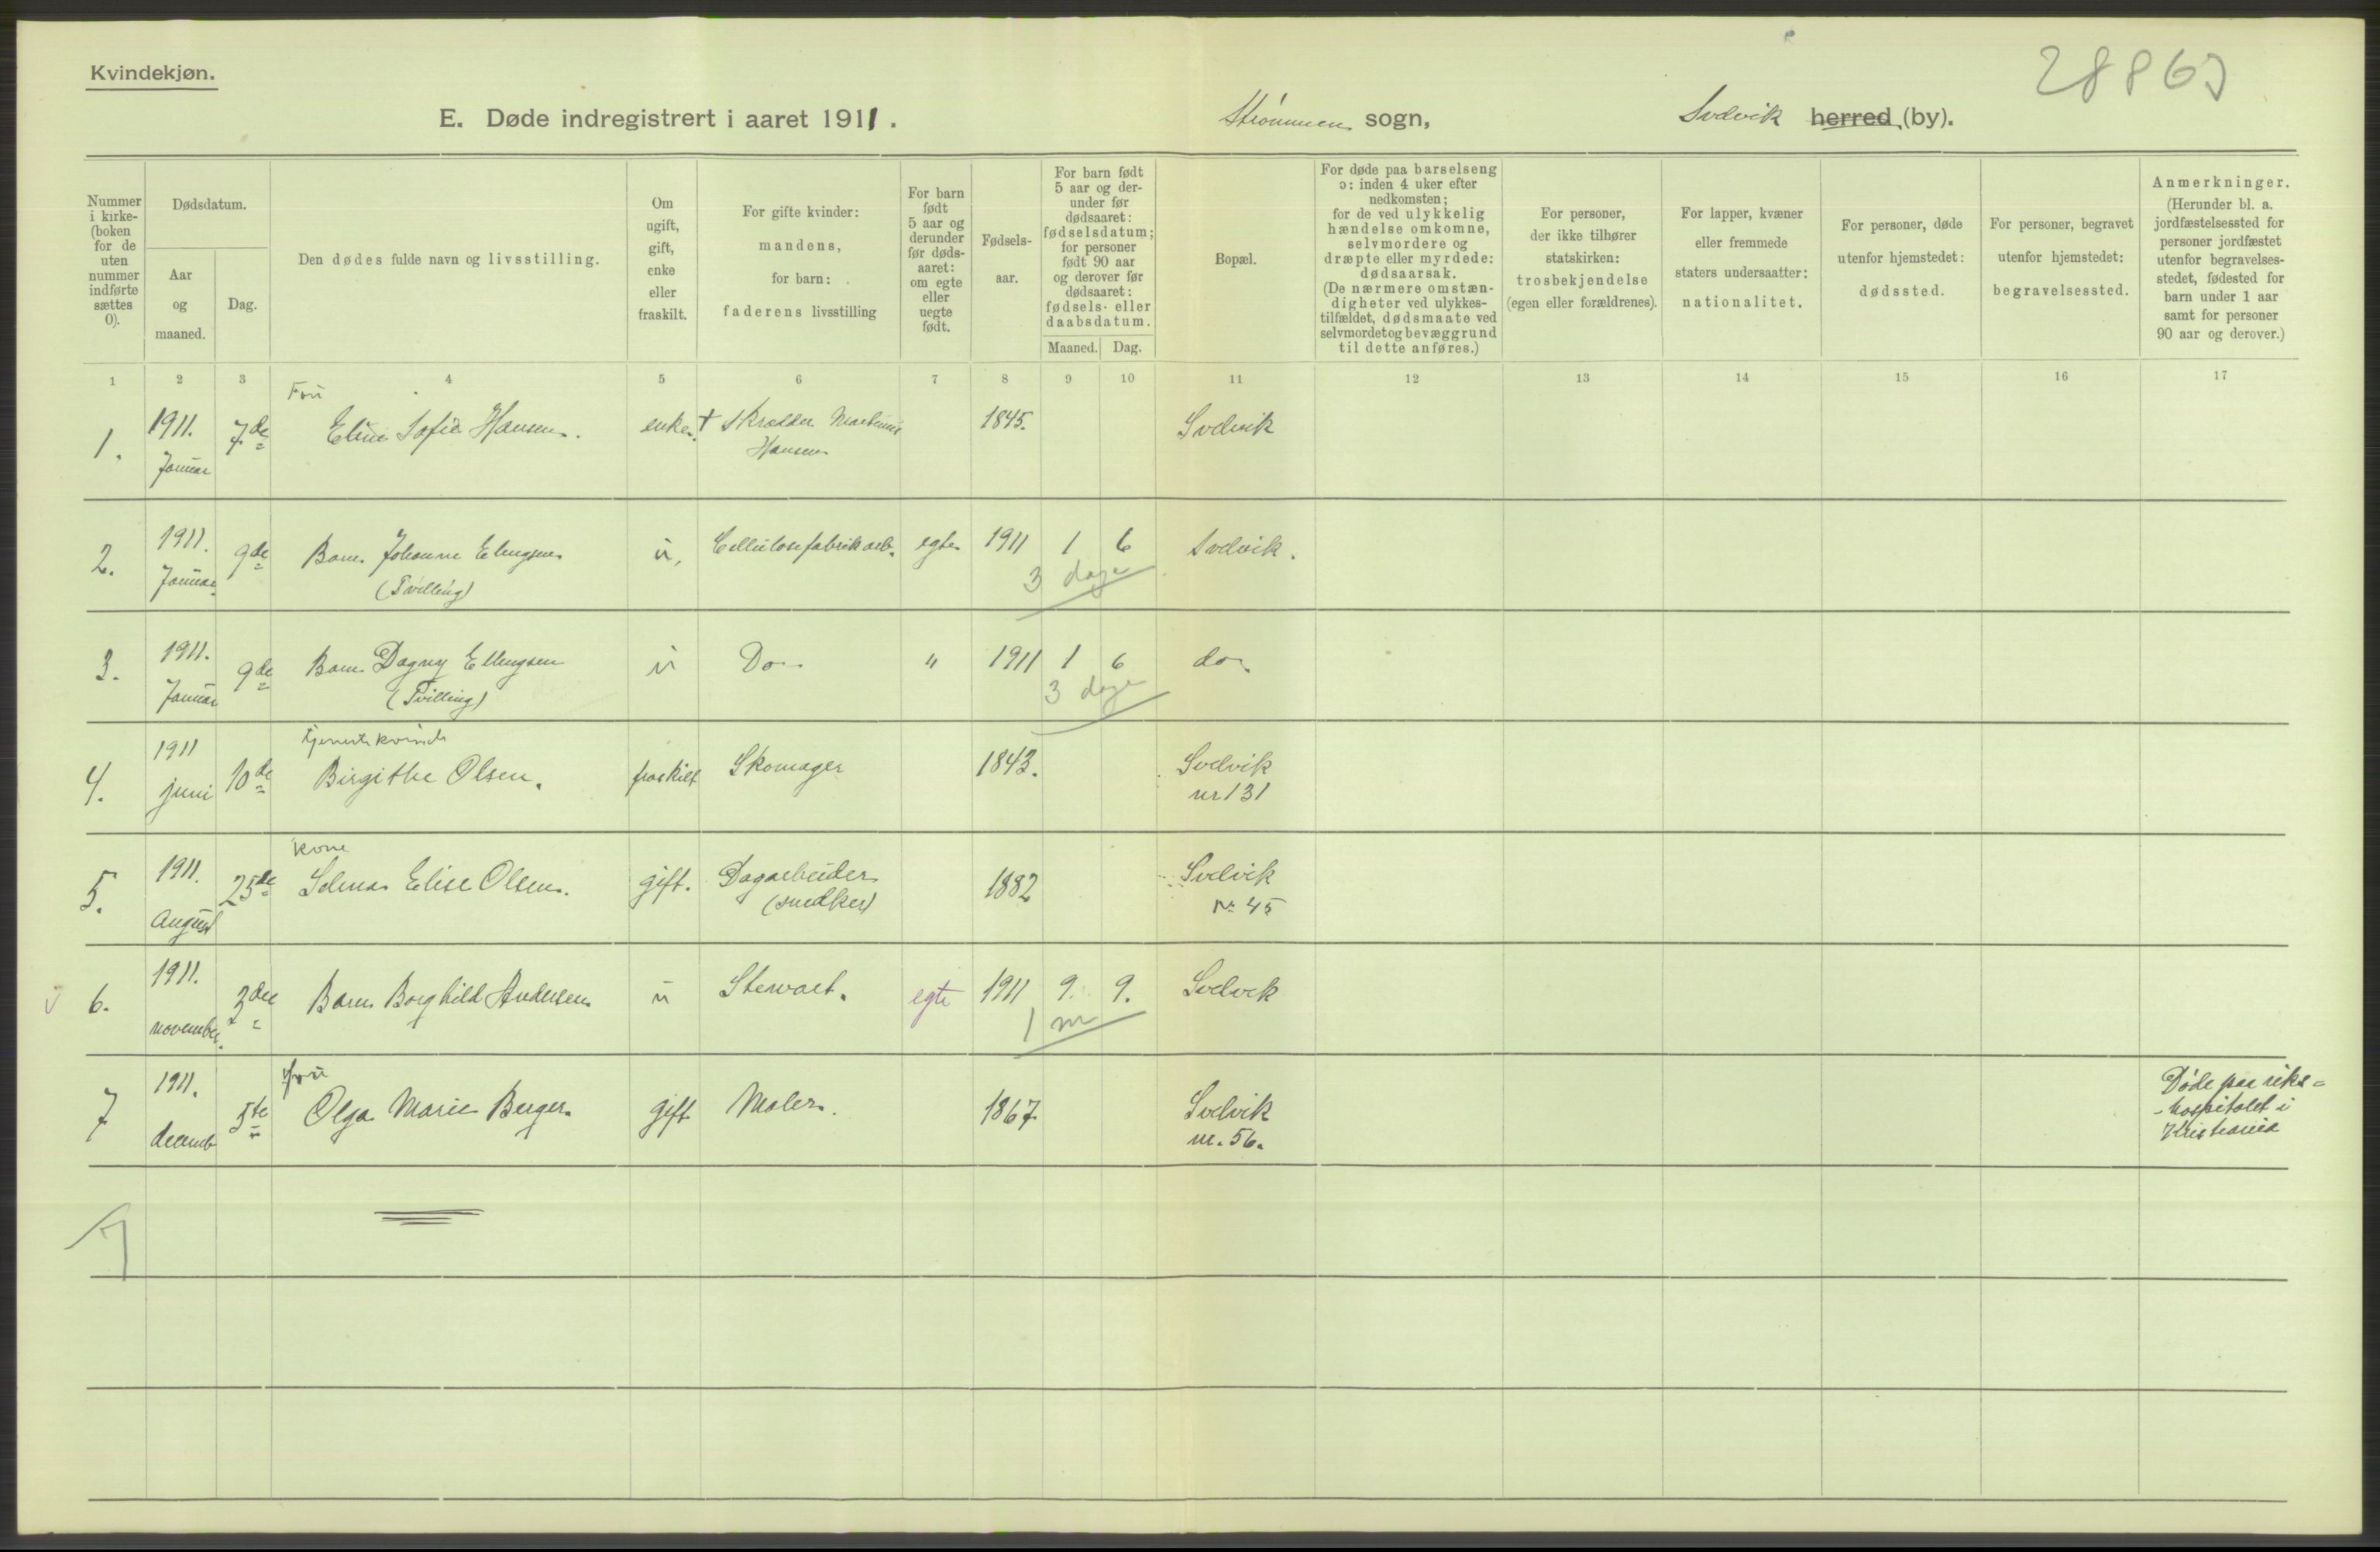 Kvindekjøn.
28863
E. Døde indregistrert i aaret 1911. Strømmen sogn, Svelvik herred (by).
Nummer i kirke-(boken for de uten nummer indførte sættes 0).
Dødsdatum.
Aar og maaned.
Dag.
Den dødes fulde navn og livsstilling.
Om ugift, gift, enke eller fraskilt.
For gifte kvinder: mandens, for barn: faderens livsstilling
For barn født 5 aar og derunder før døds-aaret: om egte eller uegte født.
Fødsels-aar.
For barn født 5 aar og der-under før dødsaaret: fødselsdatum; for personer født 90 aar og derover før dødsaaret: fødsels- eller daabsdatum.
Maaned. Dag.
Bopæl.
For døde paa barselseng ɔ: inden 4 uker efter nedkomsten; for de ved ulykkelig hændelse omkomne, selvmordere og dræpte eller myrdede: dødsaarsak. (De nærmere omstæn-digheter ved ulykkes-tilfældet, dødsmaate ved selvmord et og bevæggrund til dette anføres.)
For personer, der ikke tilhører statskirken: trosbekjendelse (egen eller forældrenes).
For lapper, kvæner eller fremmede staters undersaatter: nationalitet.
For personer, døde utenfor hjemstedet: dødssted.
For personer, begravet utenfor hjemstedet: begravelsessted.
Anmerkninger. (Herunder bl. a. jordfæstelsessted for personer jordfæstet utenfor begravelses-stedet, fødested for barn under 1 aar samt for personer 90 aar og derover.)
1 2 3 4 5 6 7 8 9 10 11 12 13 14 15 16 17
Fru
1. 1911. Januar 7de Eline Sofie Hansen. enke. + Skrædder Martinus Hansen 1845. Svelvik
2. 1911. Januar 9de Barn Johanne Ellingsen (Tvilling) u, Cellulosefabrikarb. egte 1911 1 6 Svelvik.
3 dage
3. 1911. Januar 9de Barn Dagny Ellingsen (Tvilling) u Do " 1911 1 6 do
3 dage
tjenestekvinde
4. 1911 juni 10de Birgithe Olsen. fraskilt Skomager 1843. Svelvik nr 131
kone
5. 1911. August 25de Selma Elise Olsen. gift. Dagarbeider (snedker) 1882 Svelvik Nr 45
6. 1911. november. 3die Barn Borghild Andersen u Stewart. egte 1911 9. 9. Svelvik
1 m
fru
7 1911. decemb 5te Olga Marie Berger. gift Maler. 1867 Svelvik nr. 56. Døde paa riks=
-hospitalet i
Kristiania
7